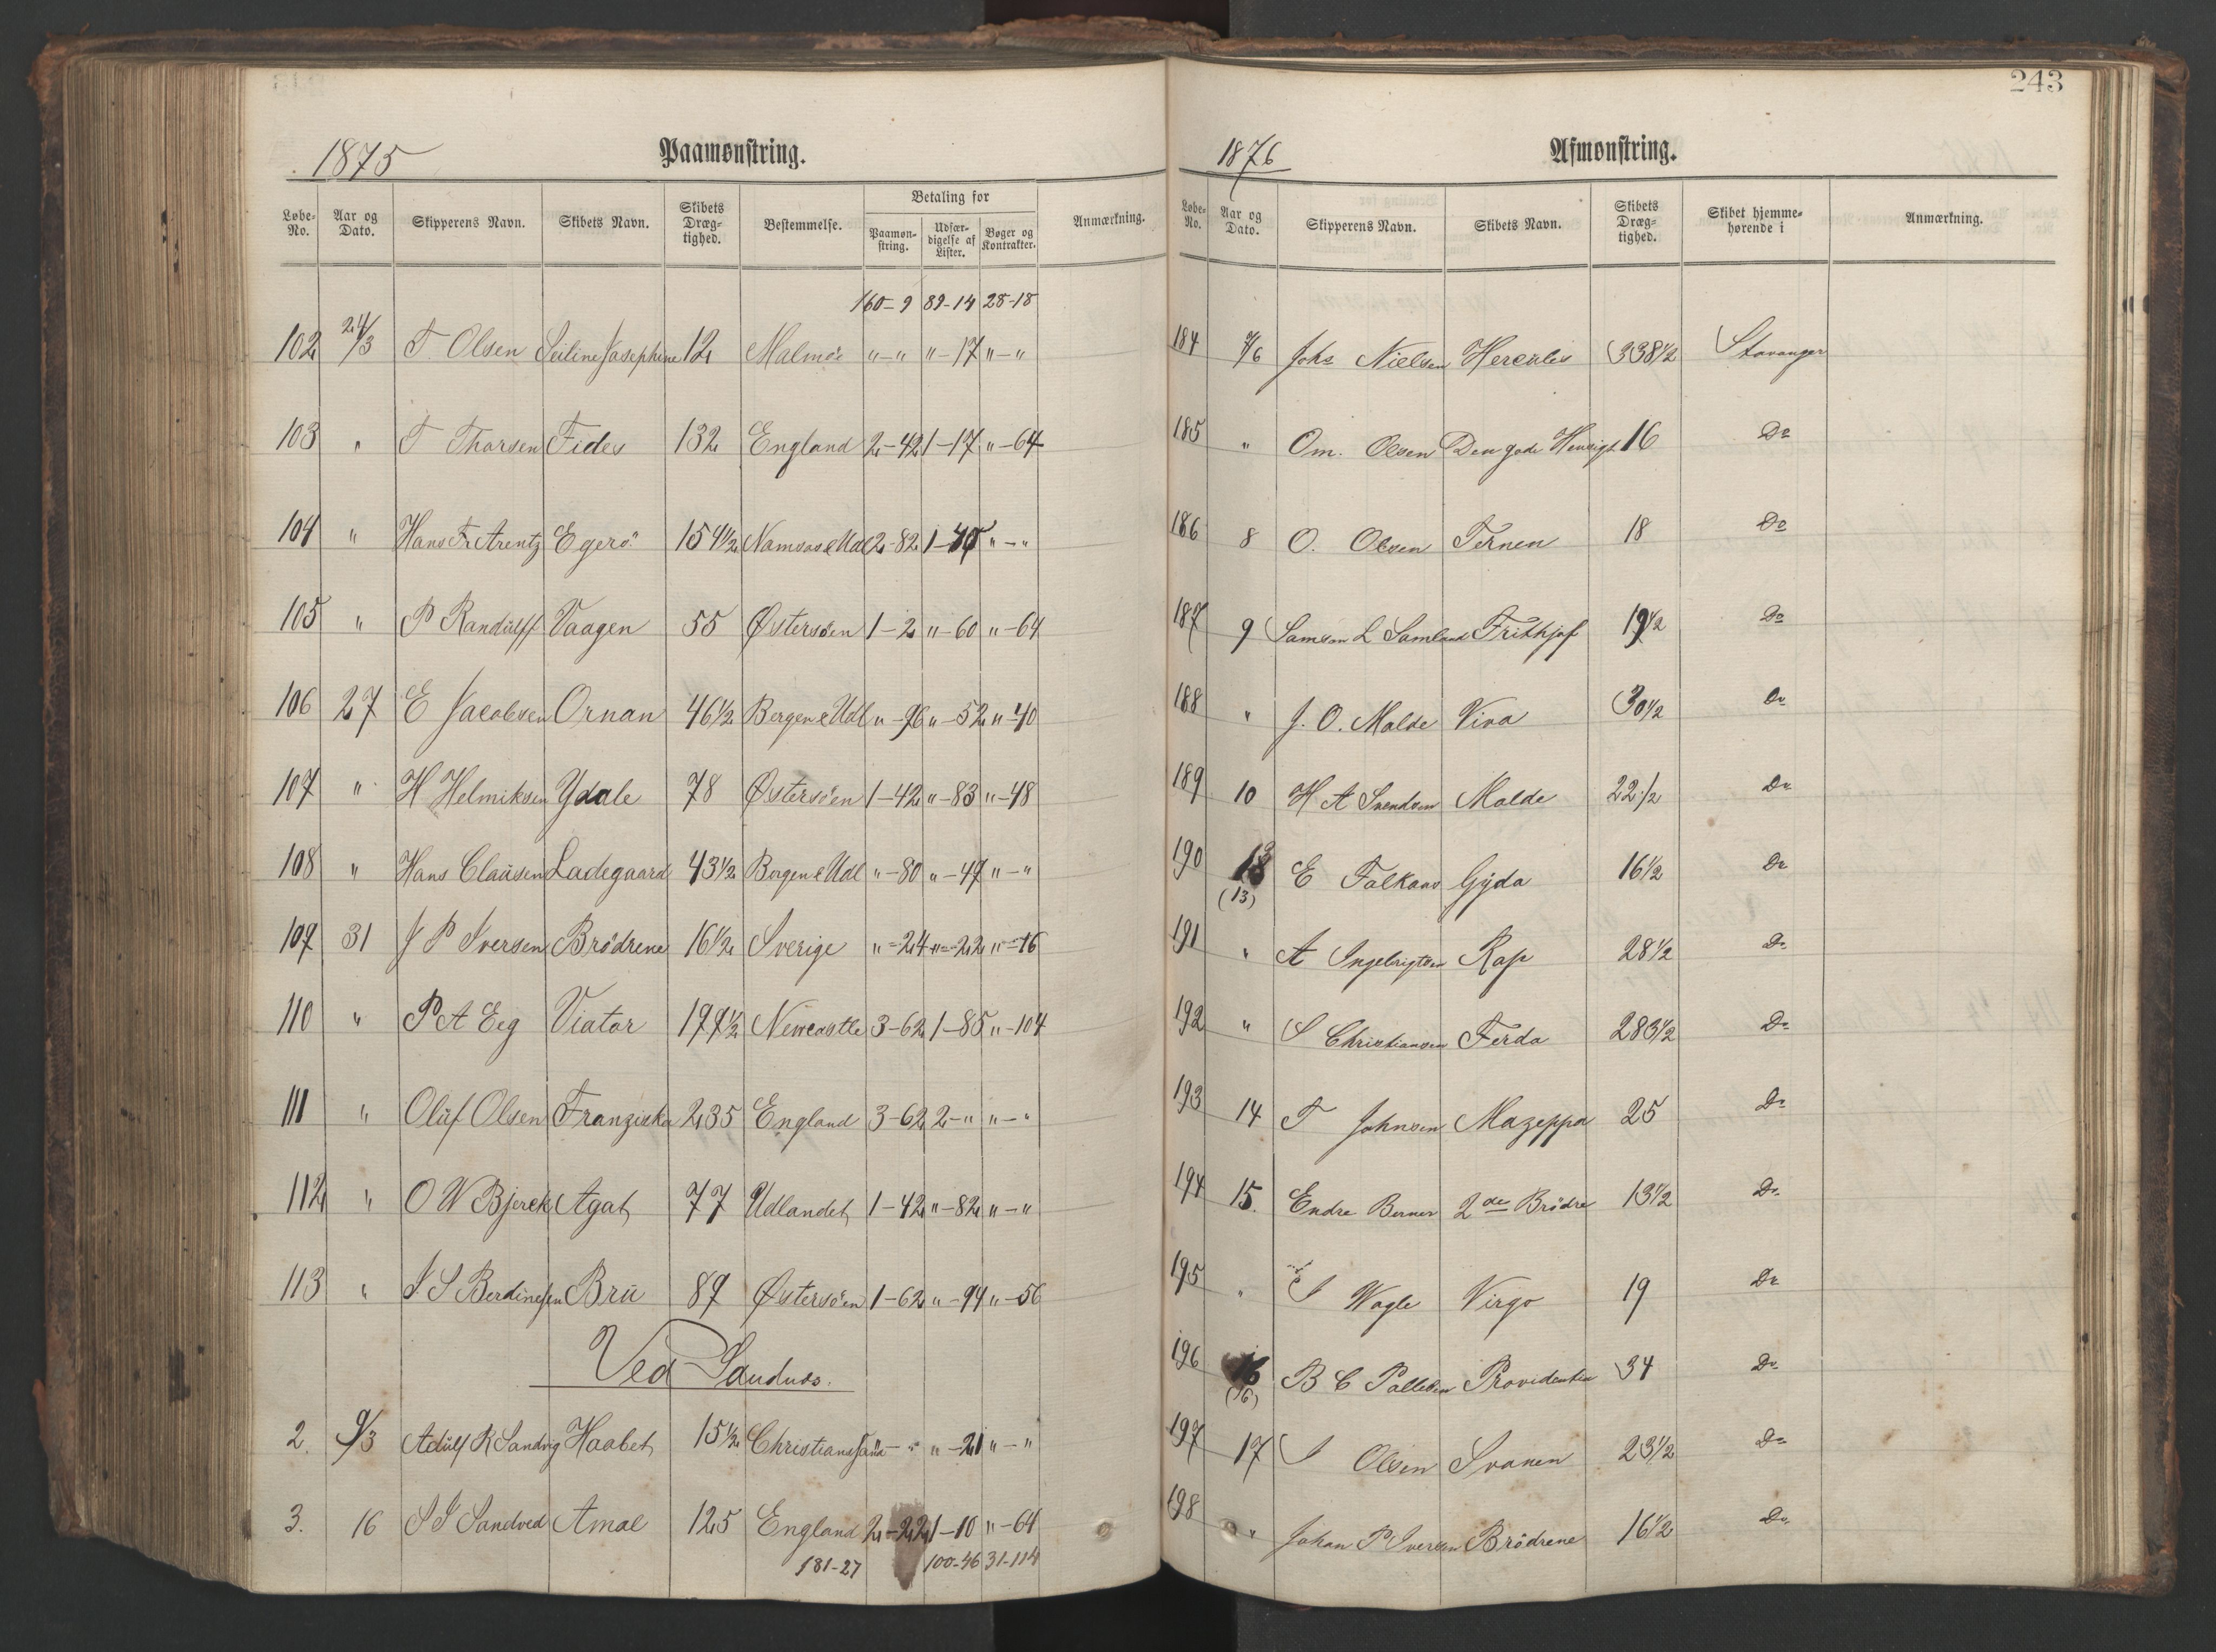 1875 Paamønstring.
Løbe-No. Aar og Dato. Skipperens Navn. Skibets Navn. Skibets Dræg-tighed. Bestemmelse. Betaling for Paamøn-string. Udfær-digelse af Lister. Bøger og Kontrakter. Anmærkning.
160-9 89-14 28-18
102 24/3 T. Olsen Seiline Josephine 12 Malmöe "-" "-17 "-"
103 " T Thorsen Fides 132 England 2-42 1-17 "-64
104 " Hans Fr Arentz Egerö 154½ Namsos & Udl 2-82 1-45 "-"
105 " P Randulff Vaagen 55 Østersöen 1-2 "-60 "-64
106 27 E Jacobsen Ornan 46½ Bergen & Udl "-96 "-52 "-40
107 " H Helmiksen Ydale 78 Østersöen 1-42 "-83 "-48
108 " Hans Clausen Ladegaard 43½ Bergen & Udl "-80 "-49 "-"
109 31 J P Iversen Brödrene 16½ Sverige "-24 "-22 "-16
110 " P A Eeg Viator 199½ Newcastle 3-62 1-85 "-104
111 " Oluf Olsen Franziska 235 England 3-62 2-" "-"
112 " O W Bjerck Agat 77 Udlandet 1-42 "-82 "-"
113 " J S Berdinesen Bru 89 Østersöen 1-62 "-94 "-56
Ved Sandnæs.
2. 9/3 Adulf R Sandvig Haabet 15½ Christianssand - " "-21 "-"
3. 16 S J Sandved Amal 125 England 2-22 1-10 "-64
181-27 100-46 31-114
243
1876 Afmønstring.
Løbe-No. Aar og Dato. Skipperens Navn. Skibets Navn. Skibets Dræg-tighed. Skibet hjemme-hørende i Anmærkning.
184 7/6 Johs Nielsen Hercules 338½ Stavanger
185 " Om. Olsen Den gode Hensigt 16 Do
186 8 O. Olsen Ternen 18 Do
187 9 Samson L Samland Frithjof 19½ Do
188 " J. O. Malde Viva 30½ Do
189 10 H A Svendsen Malde 22½ Do
190 13 (13) E Falkans Gyda 16½ Do
191 " A Ingebrigtsen Rap 28½ Do
192 " S Christiansen Ferda 283½ Do
193 14 T Johnsen Mazeppa 25 Do
194 15. Endre Berner 2de Brödre 13½ Do
195 " S Wagle Virgo 19 Do
196 16 (16) B C Pallesen Providentia 34 Do
197 17 S Olsen Svanen 23½ Do
198 " Johan P Iversen Brödrene 16½ Do